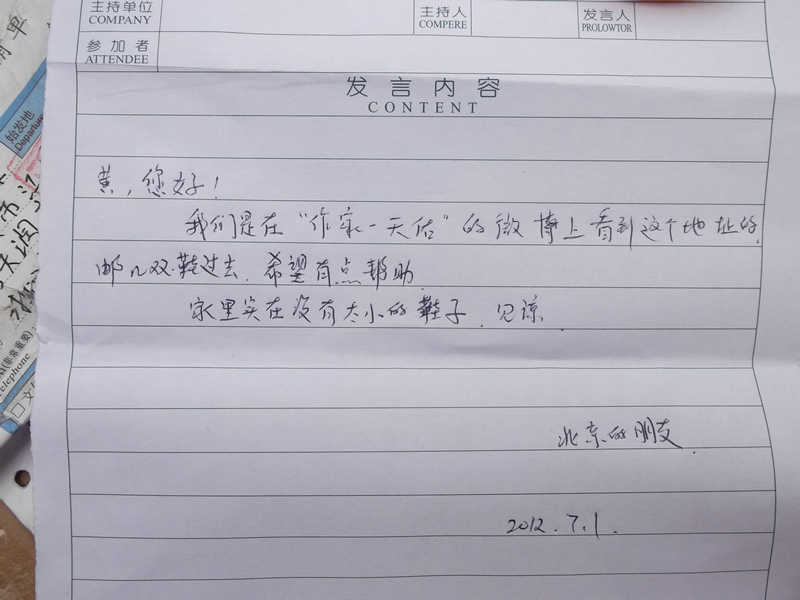 主持单位
COMPANY
主持人
COMPERE
发言人
PROLOWTOR
参加者
ATTENDEE
发言内容
CONTENT
黄,您好!
我们是在“作家一天佑”的微博上看到这个地址的.
邮几双鞋过去.希望有点帮助.
家里实在没有太小的鞋子.见谅.
北京的朋友.
2012.7.1.
清单
始发地
Departure
(非常重要)
Telephone